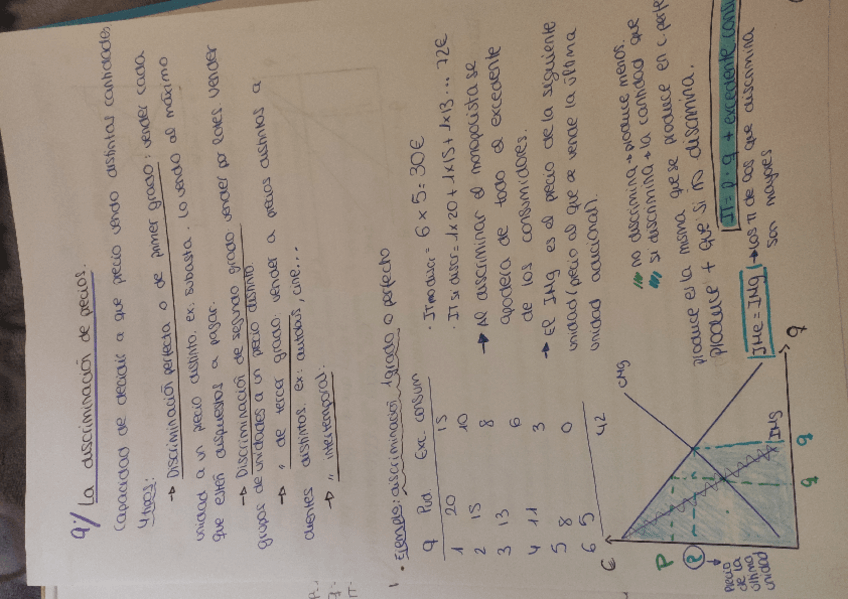 9./ La discriminación de precios.
Capacidad de decidir a que precio vendo distintas cantidades
4 tipos:
→ Discriminación perfecta o de primer grado: vender cada
unidad a un precio distinto. ex: subasta. Lo vendo al máximo
que estén dispuestos a pagar.
→ Discriminación de segundo grado vender por lotes vender
grupos de unidades a un precio distinto.
→ " de tercer grado vender a precios distintos a
clientes distintos. ex: autobús, cine...
→ " intertemporal:
• Ejemplo: discriminación 1 grado o perfecto
q Pud Exc. consum
1 20 15
2 15 10
3 13 8
4 11 6
5 8 3
6 5 0
42
· π no discr = 6 x 5 = 30€
· π si discr = 1x20 + 1x15 + 1x13 ... 72€
→ Al discriminar el monopolista se
apodera de todo el excedente
de los consumidores.
→ El IMg es el precio de la siguiente
unidad (precio al que se vende la última
unidad adicional).
no discrimina → produce menos.
si discrimina → la cantidad que
produce es la misma que se produce en c. perfe
produce + que si no discrimina.
π = p · q + excedente consu
IMe = IMg → Los π de los que discrimina
son mayores
€
CMg
P
P
→ precio
de la
última
unidad
IMg
q
q
Q